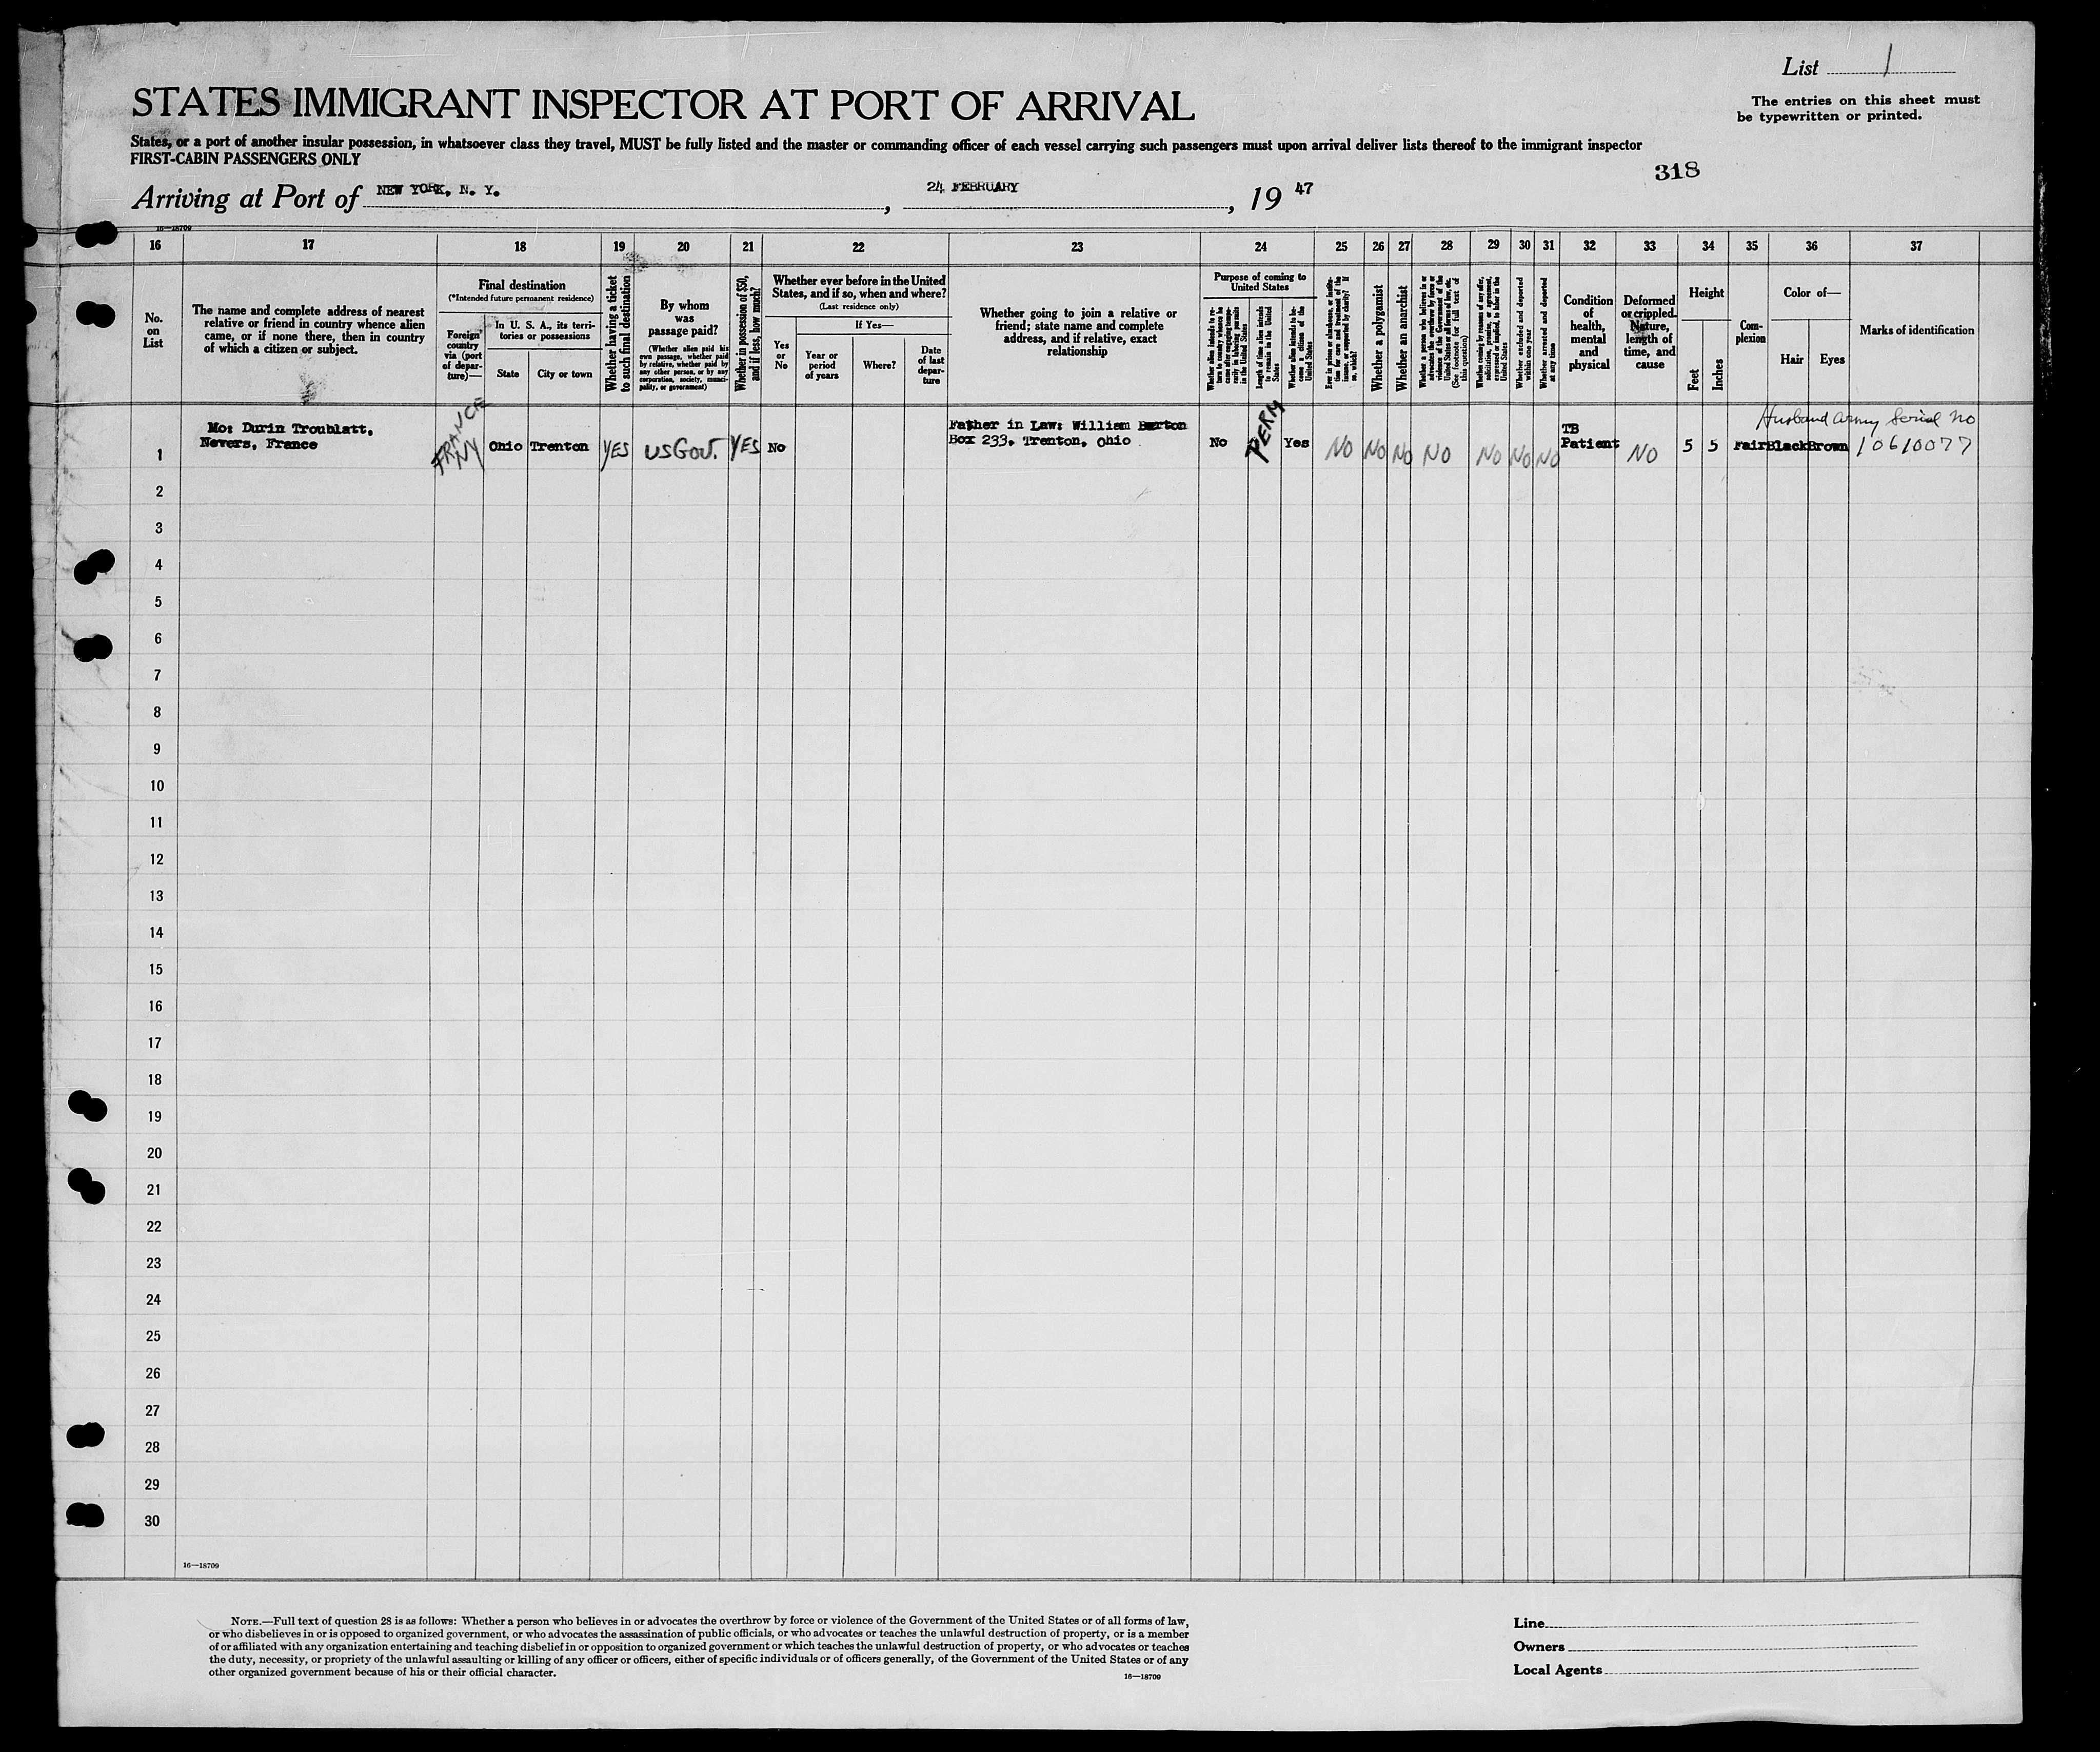 List 1
The entries on this sheet must
be typewritten or printed.
STATES IMMIGRANT INSPECTOR AT PORT OF ARRIVAL
States, or a port of another insular possession, in whatsoever class they travel, MUST be fully listed and the master or commanding officer of each vessel carrying such passengers must upon arrival deliver lists thereof to the immigrant inspector
FIRST-CABIN PASSENGERS ONLY
318
Arriving at Port of NEW YORK, N. Y. , 24 FEBRUARY , 19 47
16—18709
16 17 18 19 20 21 22 23 24 25 26 27 28 29 30 31 32 33 34 35 36 37
No.
on
List
The name and complete address of nearest
relative or friend in country whence alien
came, or if none there, then in country
of which a citizen or subject.
Final destination
(*Intended future permanent residence)
Foreign
country
via (port
of depar-
ture)—
In U. S. A., its terri-
tories or possessions
State
City or town
Whether having a ticket
to such final destination
By whom
was
passage paid?
(Whether alien paid his
own passage, whether paid
by relative, whether paid by
any other person, or by any
corporation, society, munici-
pality, or government)
Whether in possession of $50,
and if less, how much?
Whether ever before in the United
States, and if so, when and where?
(Last residence only)
Yes
or
No
If Yes—
Year or
period
of years
Where?
Date
of last
depar-
ture
Whether going to join a relative or
friend; state name and complete
address, and if relative, exact
relationship
Purpose of coming to
United States
Length of time alien intends
to remain in the United
States
Whether alien intends to be-
come a citizen of the
United States
Whether a polygamist
Whether an anarchist
Whether excluded and deported
within one year
Whether arrested and deported
at any time
Condition
of
health,
mental
and
physical
Deformed
or crippled.
Nature,
length of
time, and
cause
Height
Feet
Inches
Com-
plexion
Color of—
Hair
Eyes
Marks of identification
Husband Army Serial No
Mo: Durin Troublatt,
Nevers, France
FRANCE
NY
Ohio Trenton YES US GOV. YES No
Father in Law: William Burton
Box 233, Trenton, Ohio
No PERM Yes NO NO NO NO NO NO NO
TB
Patient
NO 5 5 Fair Black Brown 10610077
1
2
3
4
5
6
7
8
9
10
11
12
13
14
15
16
17
18
19
20
21
22
23
24
25
26
27
28
29
30
16—18709
NOTE.—Full text of question 28 is as follows: Whether a person who believes in or advocates the overthrow by force or violence of the Government of the United States or of all forms of law,
or who disbelieves in or is opposed to organized government, or who advocates the assassination of public officials, or who advocates or teaches the unlawful destruction of property, or is a member
of or affiliated with any organization entertaining and teaching disbelief in or opposition to organized government or which teaches the unlawful destruction of property, or who advocates or teaches
the duty, necessity, or propriety of the unlawful assaulting or killing of any officer or officers, either of specific individuals or of officers generally, of the Government of the United States or of any
other organized government because of his or their official character.
16—18709
Line
Owners
Local Agents